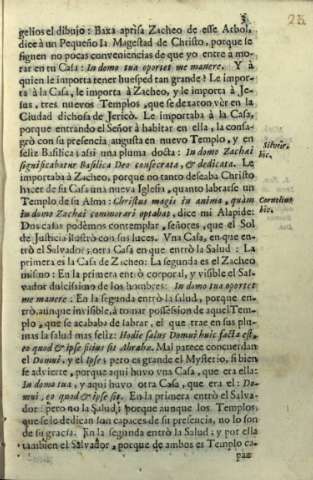 3
25
gelios el dibujo: Baxa aprisa Zacheo de esse Arbol,
dice à un Pequeño la Magestad de Christo, porque se
siguen no pocas conveniencias de que yo entre à mo-
rar en tu Casa: In domo tua oportet me manere. Y à
quien le importa tener huesped tan grande? Le impor-
ta à la Casa, le importa à Zacheo, y le importa à Je-
sus, tres nuevos Templos, que se dexaron vèr en la
Ciudad dichosa de Jericó. Le importaba à la Casa,
porque entrando el Señor à habitar en ella, la consa-
grò con su presencia augusta en nuevo Templo, y en
feliz Basilica; assi una pluma docta: In domo Zachæi
significabatur Basilica Deo consecrata, & dedicata. Le
Silveir.
hic.
importaba à Zacheo, porque no tanto deseaba Christo
hacer de su Casa una nueva Iglesia, quanto labrarse un
Templo de su Alma: Christus magis in anima, quàm
in domo Zachæi commorari optabat, dice mi Alapide:
Cornelius
hic.
Dos casas podèmos contemplar, señores, que el Sol
de Justicia ilustrò con sus luces. Vna Casa, en que en-
trò el Salvador; otra Casa en que entrò la Salud: La
primera es la Casa de Zacheo: La segunda es el Zacheo
mismo: En la primera entrò corporal, y visible el Sal-
vador dulcissimo de los hombres: In domo tua oportet
me manere: En la segunda entrò la salud, porque en-
trò, aunque invisible, à tomar possession de aquel Tem-
plo, que se acababa de labrar, el que trae en sus plu-
mas la salud mas feliz: Hodie salus Domui huic facta est,
eo quod & ipse filius sit Abrahæ. Mal parece concuerdan
el Domui, y el Ipse; pero es grande el Mysterio, si bien
se advierte, porque aqui huvo vna Casa, que era ella:
In domo tua, y aqui huvo otra Casa, que era el: Do-
mui, eo quod & ipse sit. En la primera entrò el Salva-
dor: pero no la Salud; porque aunque los Templos,
que se le dedican son capaces de su presencia, no lo son
de su gracia. En la segunda entrò la Salud; y por ella
tambien el Salvador, porque de ambos es Templo ca-
paz